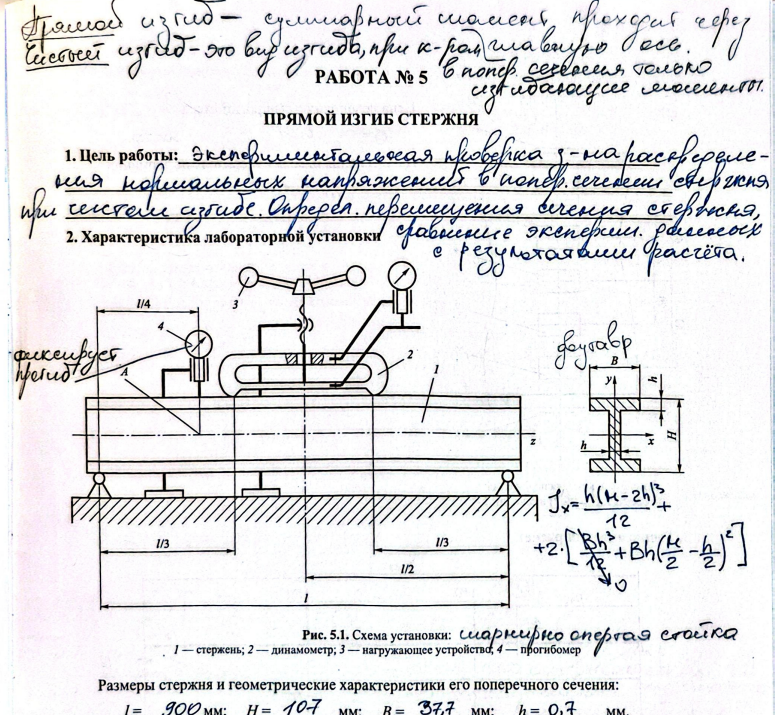 Прямой изгиб – суммарный момент проходит через
Чистый изгиб - это вид изгиба, при к-ром главную ось.
в попер. сечения только
изгибающие моменты.
РАБОТА № 5
ПРЯМОЙ ИЗГИБ СТЕРЖНЯ
1. Цель работы: экспериментальная проверка з-на распределе-
ния нормальных напряжений в попер. сечении стержня
при чистом изгибе. Определ. перемещения сечения стержня,
2. Характеристика лабораторной установки сравнение эксперим. данных
с результатами расчёта.
l/4
3
4
фиксирует
прогиб
A
2
1
z
двутавр
B
y
h
h
x
H
l/3
l/3
l/2
l
Jx = h(H-2h)³/12 +
+2·[Bh³/12 + Bh(H/2 - h/2)²]
0
Рис. 5.1. Схема установки: шарнирно опертая стойка
1 — стержень; 2 — динамометр; 3 — нагружающее устройство; 4 — прогибомер
Размеры стержня и геометрические характеристики его поперечного сечения:
l = 900 мм; H = 107 мм; B = 37,7 мм; h = 0,7 мм.